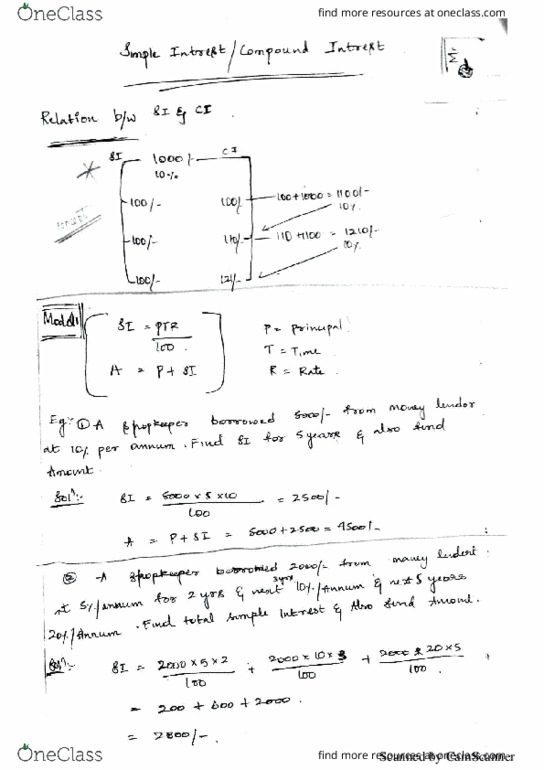 OneClass
find more resources at oneclass.com
Simple Intrest/Compound Intrest
Relation b/w SI & CI
SI 1000/- CI
10%
100/- 100/- 100+1000 = 1100/-
10%
concept
100/- 110/- 110+1100 = 1210/-
10%
100/- 121/-
Model1
SI = PTR
100
A = P+SI
P = Principal
T = Time
R = Rate
Eg:- ① A shopkeeper borrowed 5000/- from money lendor
at 10% per annum. Find SI for 5 years & also find
Amount.
Sol:- SI = 5000 x 5 x 10 = 2500/-
100
A = P+SI = 5000+2500 = 4500/-
② A shopkeeper borrowed 2000/- from money lendert
at 5%/annum for 2 yrs & next 3yrs 10%/Annum & next 5 years
20%/Annum. Find total simple interest & Also find Amount.
Sol:- SI = 2000 x 5 x 2 + 2000 x 10 x 3 + 2000 x 20 x 5
100 100 100
= 200 + 600 + 2000
= 2800/-
OneClass
find more resources at oneclass.com
Scanned by CamScanner